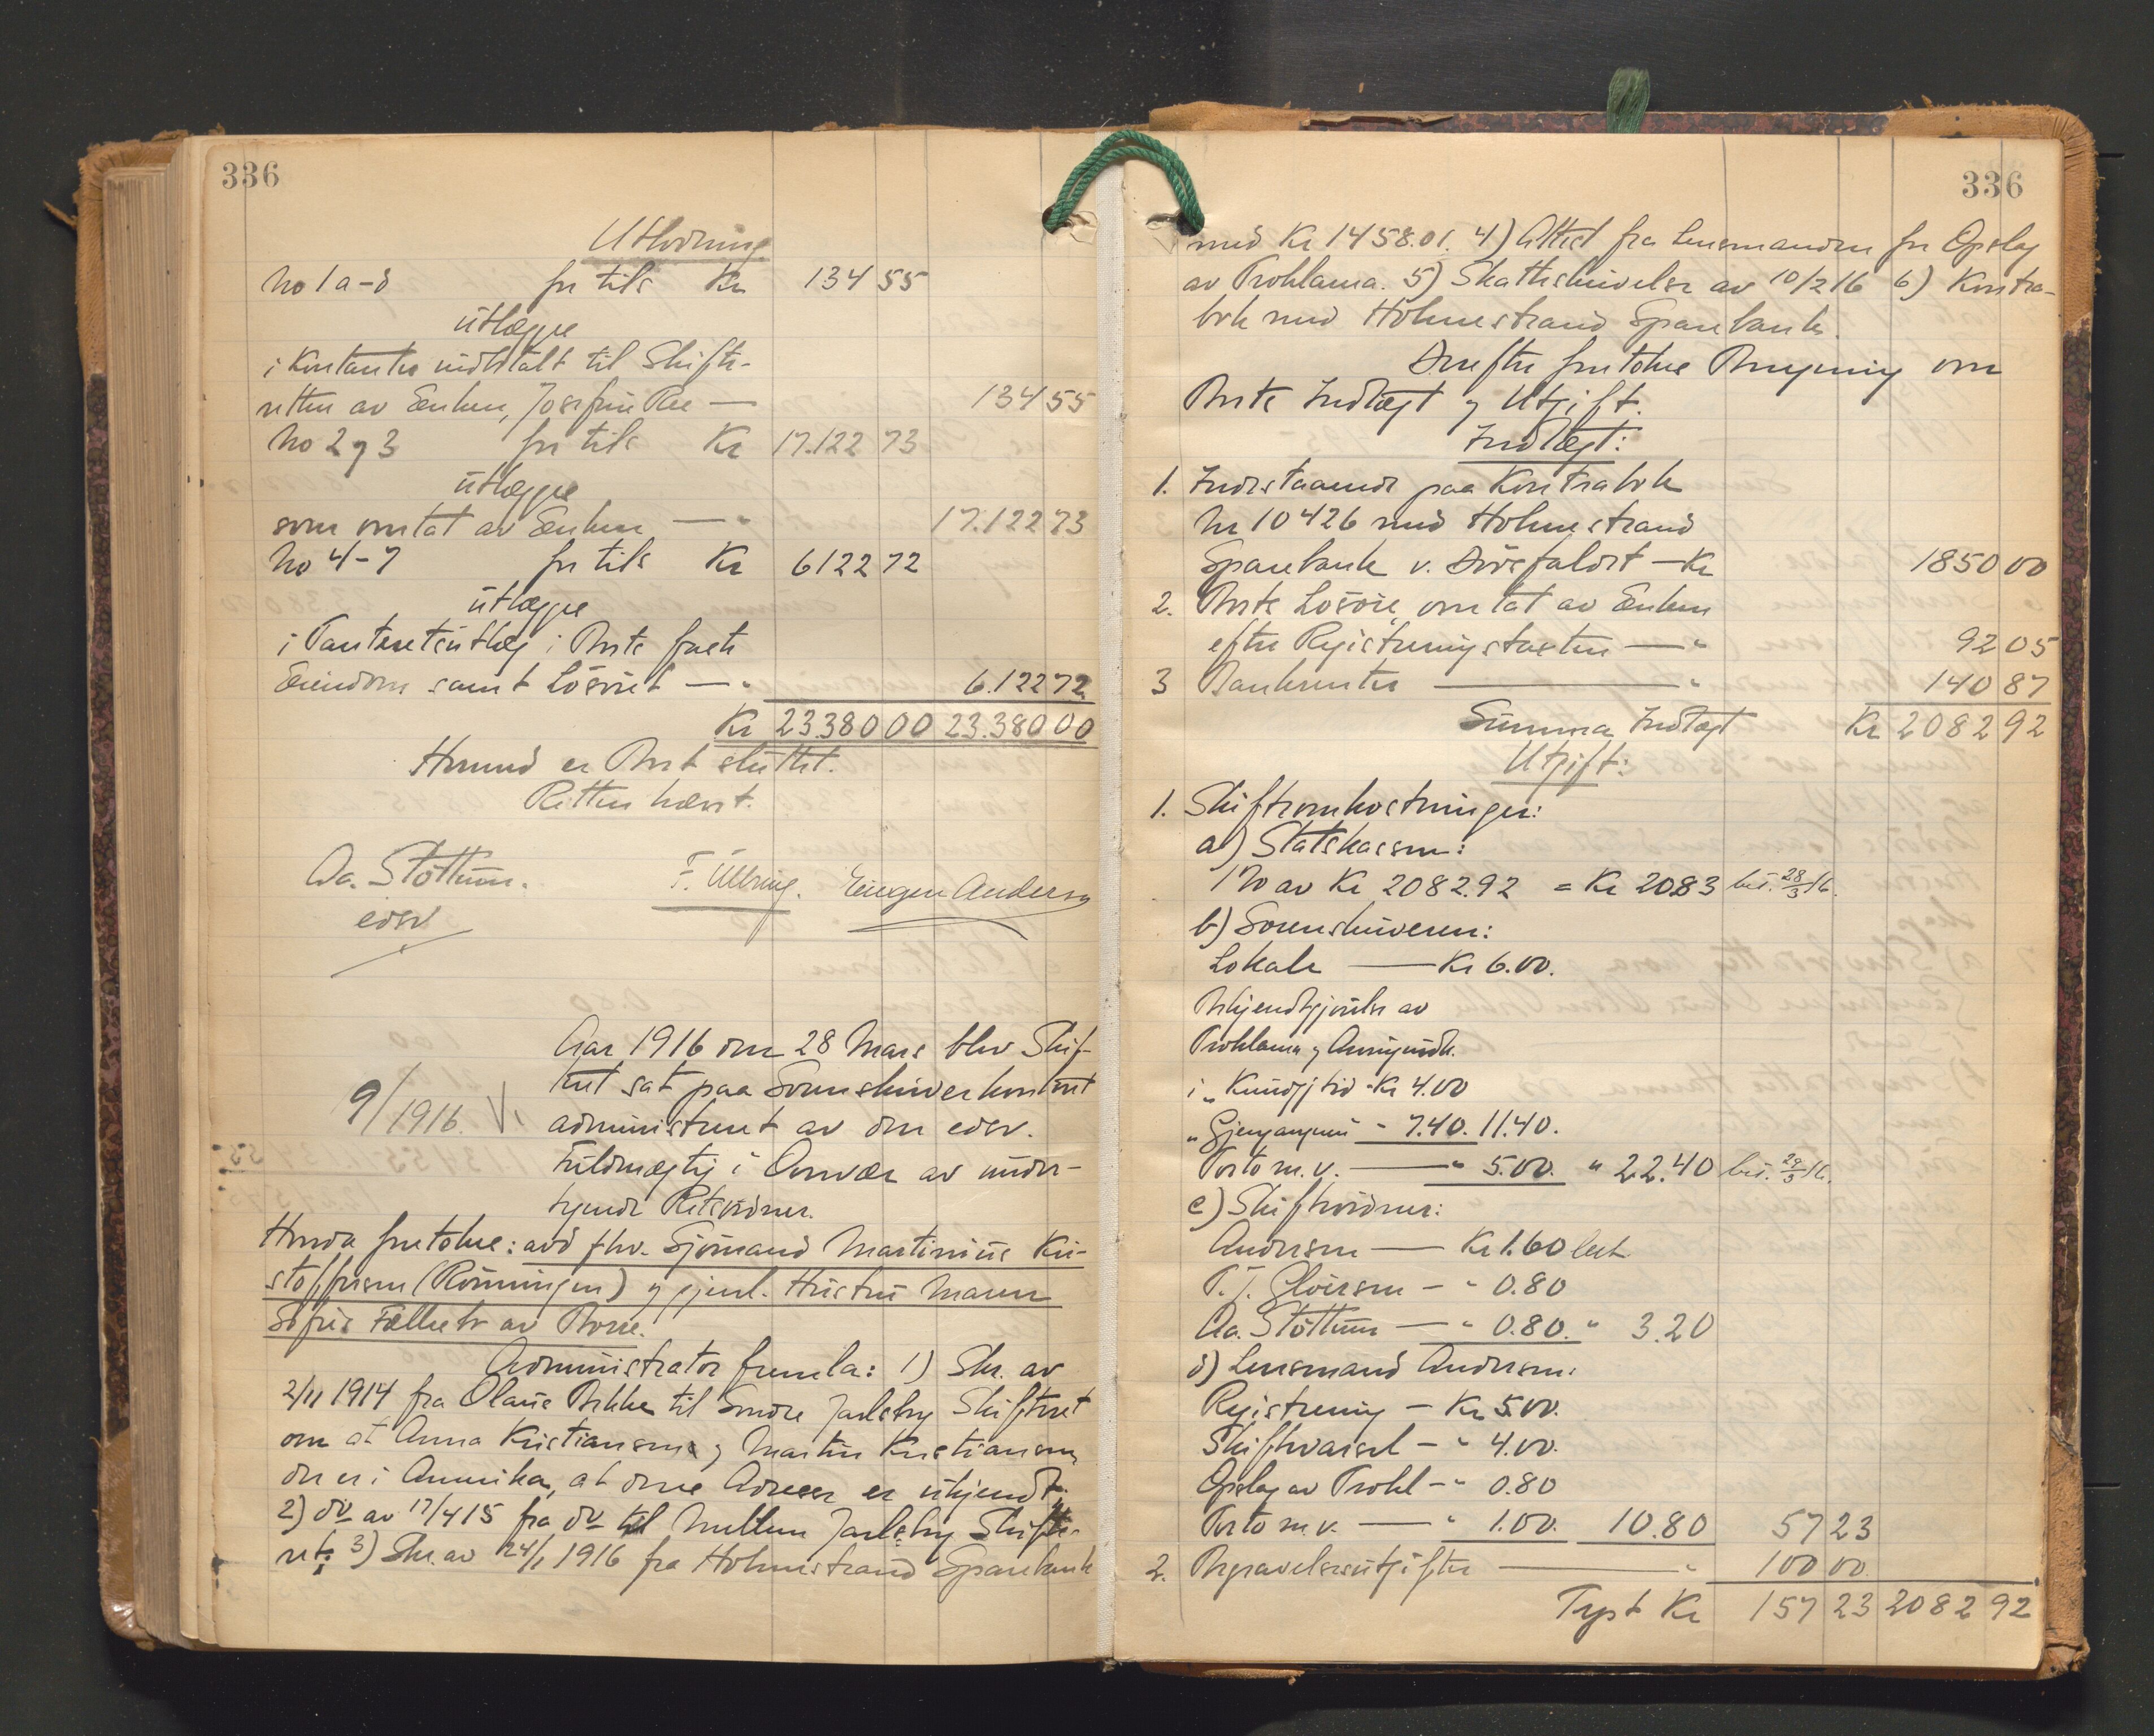 336
Utlodning
No 1 a-d for tils Kr 134 55
utlægges
i Kontanter indbetalt til Skifte-
retten av Enken, Josefine Ree — 134 55
No 2 og 3 for tils Kr 17.122 73
utlægges
som omtat av Enken — " 17.122 73
No 4-7 for tils Kr 6122 72
utlægges
i Panteretsutlæg i Boets faste
Eiendom samt Løsøret — " 6.122 72
Kr 23.380 00 23.380 00
Hermed er Boet sluttet.
Retten hævet.
Aa. Støttum. F. Ullring. Eugen Andersen
edsv
Aar 1916 den 28 Mars blev Skif-
9/1916. teret sat paa Sorenskriverkontoret
administreret av den edsv.
Fuldmægtig i Overvær av under-
tegnede Retsvidner.
Herda foretokes: avd fhv. Sjømand Martinius Kri-
stoffersen (Rønningen) og gjenl. Hustru Maren
Sofies Fællesbo av Borre.
Administrator fremla: 1) Skr. av
2/11 1914 fra Olaus Bekke til Søndre Jarlsberg Skifteret
om at Anna Kristiansen og Martin Kristiansen
der er i Amerika, at deres Adresse er ukjendt.
2) do av 17/4 15 fra do til Mellem Jarlsberg Skifte-
ret. 3) Skr. av 24/1 1916 fra Holmestrand Sparebank
336
med Kr 1458.01. 4) Attest fra Lensmanden for Opslag
av Proklama. 5) Skatteskrivelse av 10/2 16 6) Kontra-
bok med Holmestrand Sparebank.
Derefter foretokes Beregning over
Boets Indtægt og Utgift.
Indtægt:
1. Indestaaende paa Kontrabok
Nr 10426 med Holmestrand
Sparebank v. Dødsfaldet — Kr 1850 00
2. Boets Løsøre, omtat av Enken
efter Registreringstaksten — " 92 05
3 Bankrenter — " 140 87
Summa Indtægt Kr 2082 92
Utgift:
1. Skifteomkostninger:
a) Statskassen:
1% av Kr 2082.92 = Kr 20.83 bet. 28/3 16.
b) Sorenskriveren:
Lokale — Kr 6.00.
Bekjendtgjørelse av
Proklama og Avningsindk.
i "Kundgj tid" Kr 4.00
" Gjengangeren " 7.40. 11.40.
Porto m.v. — " 5.00. " 22.40 bet. 29/3 16.
c) Skiftevidner:
Andersen — Kr 1.60 bet
T. J. Gløersen — " 0.80
Aa. Støttum — " 0.80. " 3.20
d) Lensmand Andersen:
Registrering — Kr 5.00.
Skiftevarsel — " 4.00.
Opslag av Prokl — " 0.80
Porto m.v. — " 1.00. 10.80 57 23
2. Begravelsesutgifter — " 100 00
Trspt Kr 157 23 2082 92